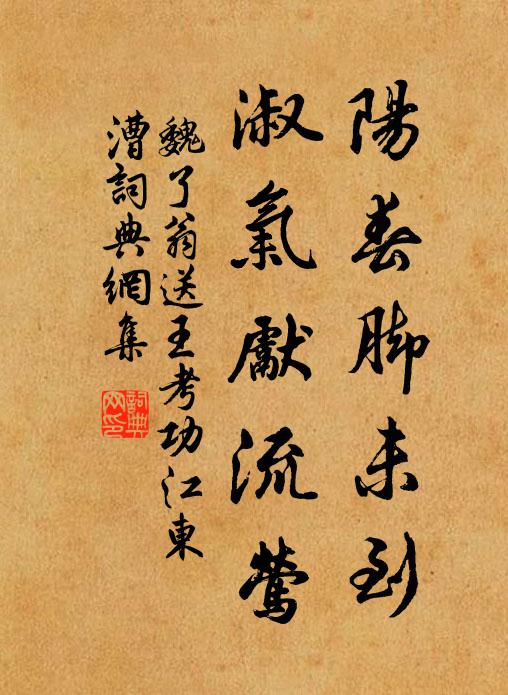 陽春脚未到
淑氣獻流鶯
魏了翁送王考功江東
漕詞典網集
詞典
网印